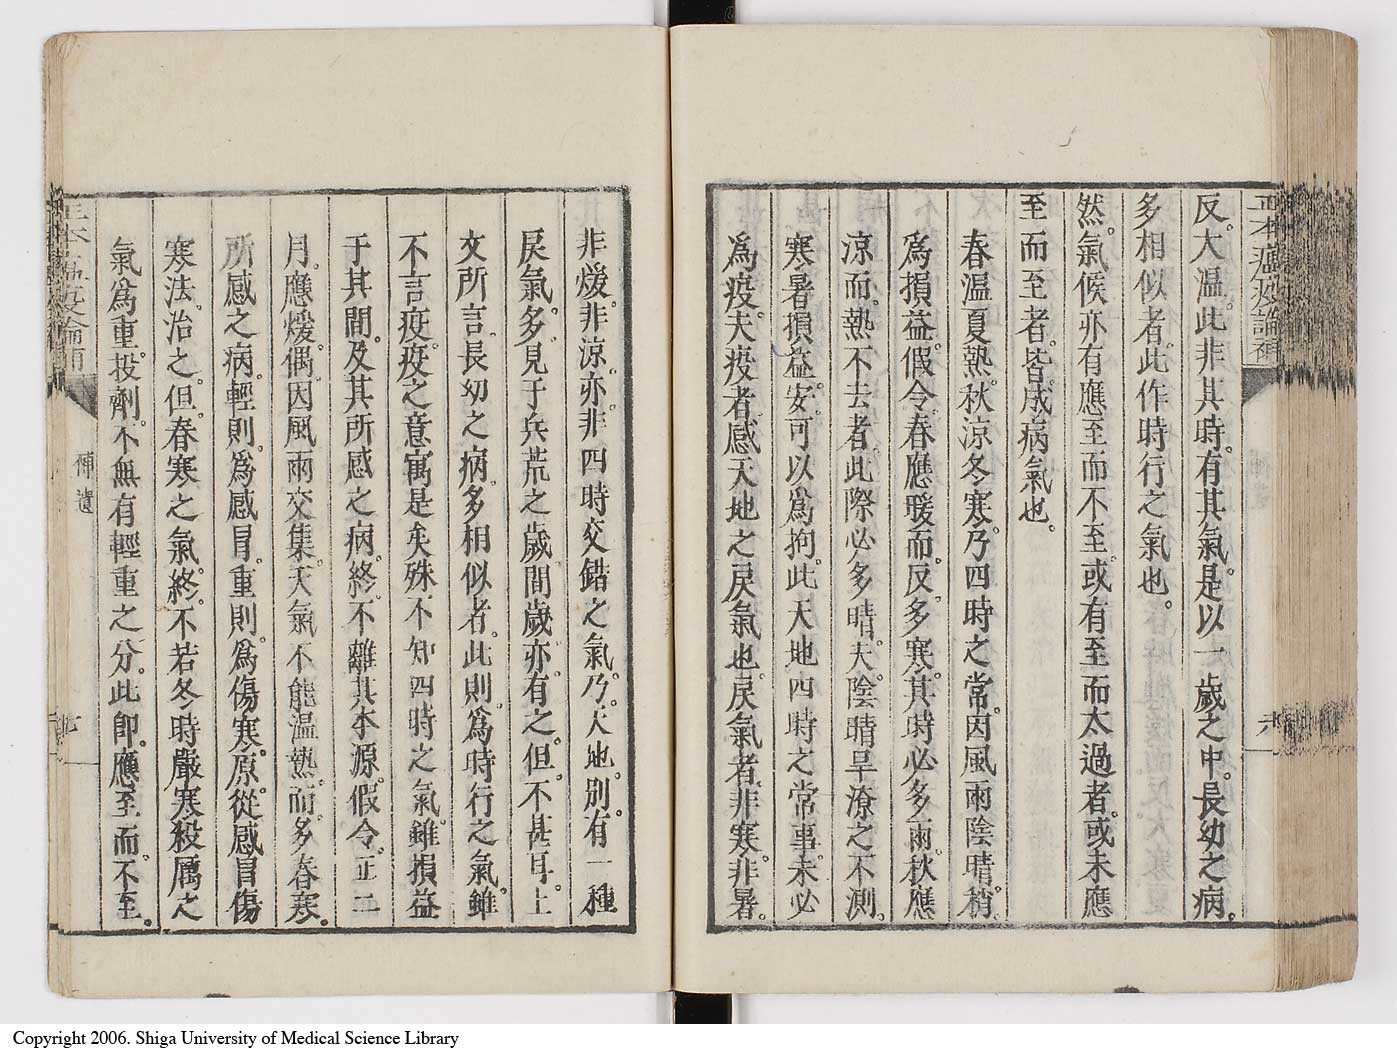 反大温。此非其時。有其氣。是以一歲之中。長幼之病。
多相似者。此作時行之氣也。
然。氣候亦有應至而不至。或有至而太過者。或未應
至而至者。皆成病氣也。
春温夏熱。秋涼冬寒。乃四時之常。因風雨陰晴。稍
爲損益。假令春應暖而反多寒。其時必多雨。秋應
涼而熱不去者。此際必多晴。夫陰晴旱潦之不測。
寒暑損益。安可以爲拘。此天地四時之常事。未必
爲疫。夫疫者感天地之戾氣也。戾氣者。非寒。非暑。
非煖。非涼。亦非四時交錯之氣。乃天地別有一種
戾氣。多見于兵荒之歲。間歲亦有之。但不甚耳。上
文所言。長幼之病。多相似者。此則爲時行之氣。雖
不言疫。疫之意寓是矣。殊不知四時之氣。雖損益
于其間。及其所感之病。終不離其本源。假令正二
月。應煖。偶因風雨交集。天氣不能温熱。而多春寒。
所感之病。輕則爲感冒。重則爲傷寒。原從感冒傷
寒法。治之。但春寒之氣。終不若冬時嚴寒殺厲之
氣爲重。投劑。不無有輕重之分。此即應至而不至。
補遺
七
Copyright 2006. Shiga University of Medical Science Library